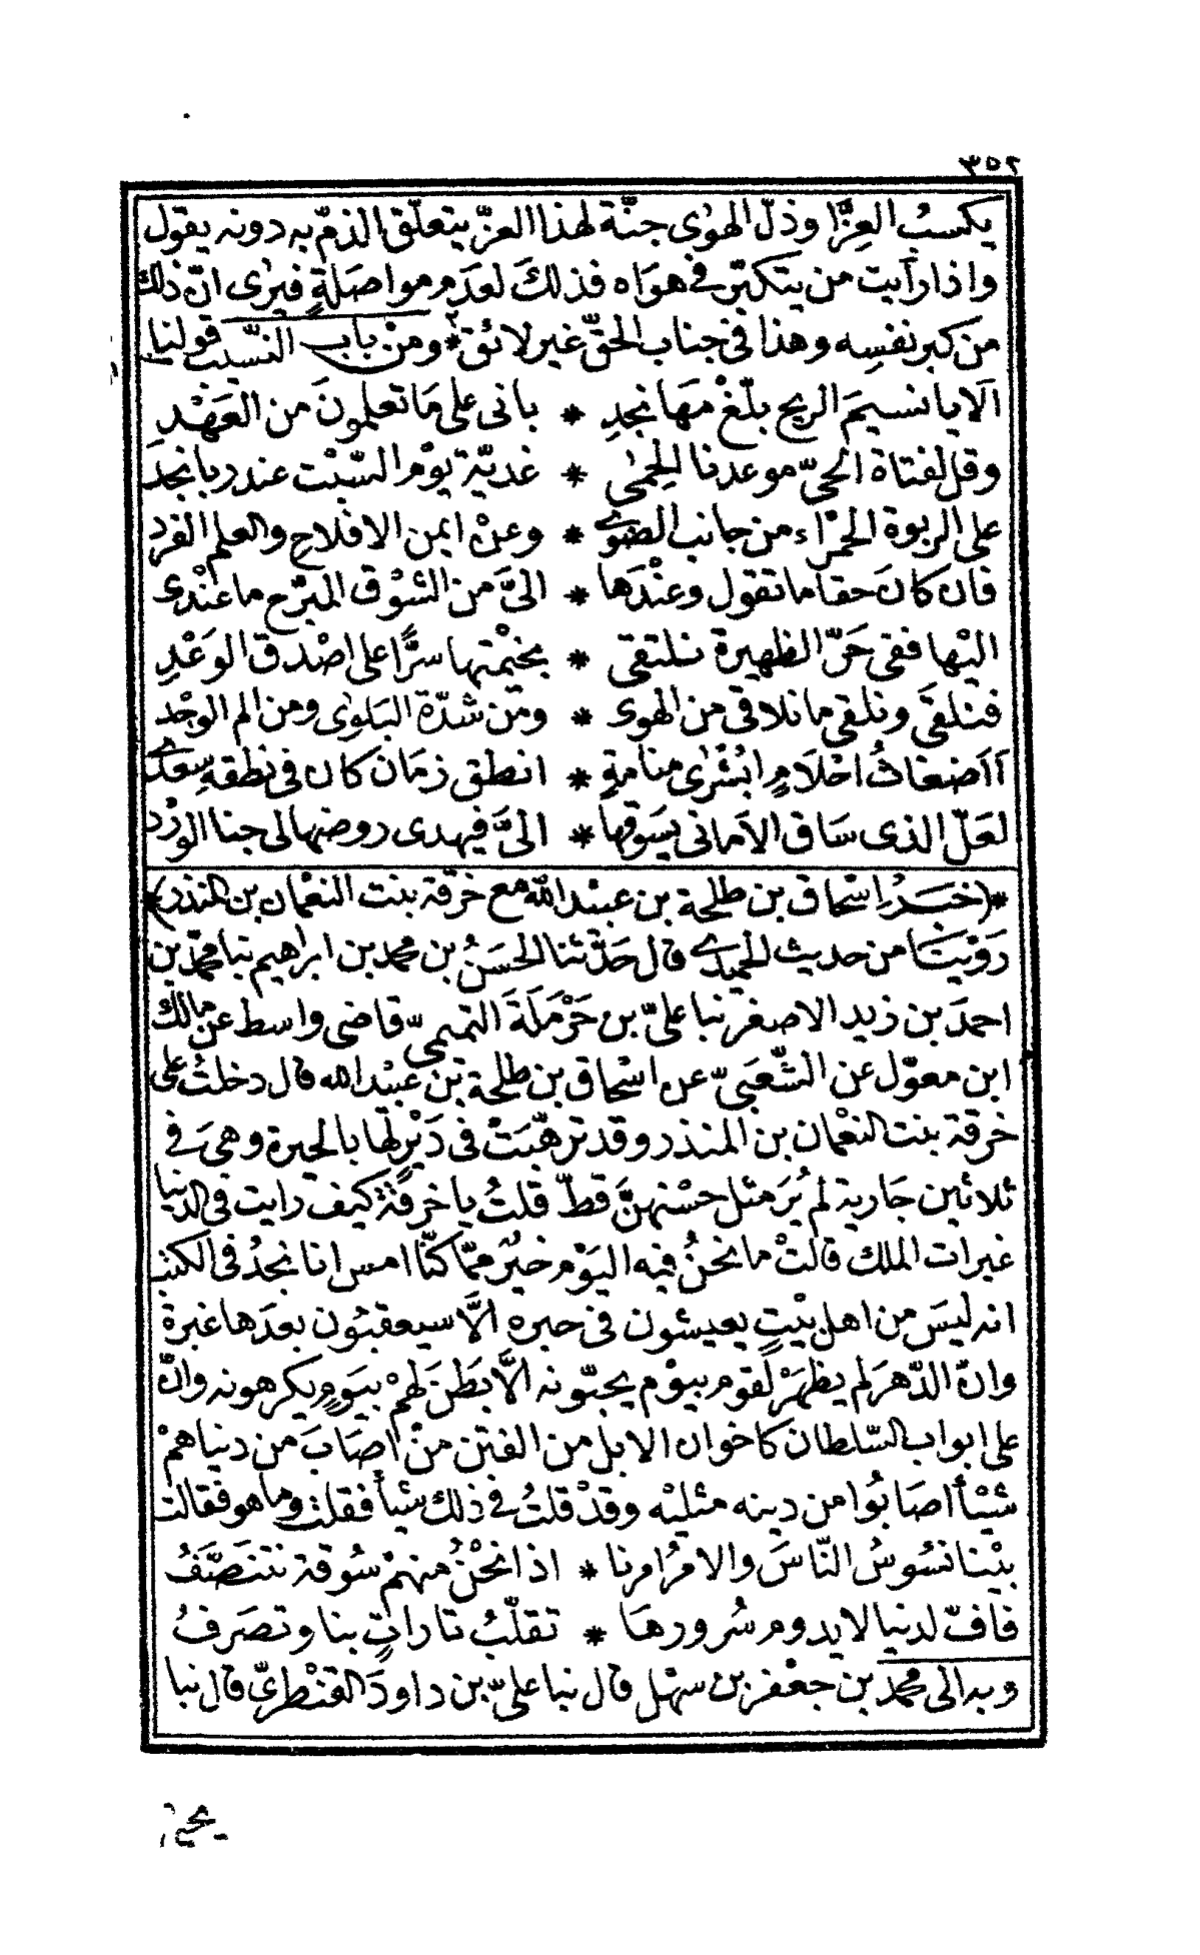 ٣٥٢
يكسبُ العِزّا وذلّ الهوٰى جنّة لهذا العزّ يتعلّق الذمّ به دونه يقول
واذا رأيت من يتكبّر في هوَاه فذلكَ لعدَم مواصَلةٍ فيرٰى انّ ذلك
من كبر نفسِه وهذا في جناب الحقّ غير لائق * ومنْ باب النسّيب قولنا
اَلا يا نسيمَ الريح بلّغْ مَها نجدِ * بانى على مَا تعلمونَ من العَهْدِ
وقل لفتاة الحيّ موعدنا الحِمٰى * غديّة يوْم السّبْت عند ربا نجد
على الربوة الحمْرَاء من جانب الضوى * وعنْ ايمن الافلاج والعلم الفرد
فان كانَ حقا ما تقول وعنْدَها * الىَّ من الشوْق المبرّح ما عنْدى
اليْها ففى حَرّ الظهيرة نلتقى * بخيْمتها سرًّا على اصْدق الوَعْدِ
فنلقىَ ونلقى ما نلاقى من الهوى * ومن شدّة البَلوٰى ومن الم الوجْد
أاَضغاثُ احْلامٍ ابُشْرٰى منامةٍ * انطق زمَان كان فى نطقه سعدى
لعَلّ الذى سَاق الاَمانى يسَوقها * الىَّ فيهدى روضها لى جنا الورْد
*(خبَرُ اِسْحاق بن طلحة بن عبْد الله مع خرقة بنت النعْمان بن المنذر)*
رَوَيْنا من حديث الحميدى قال حَدّثنا الحسَنُ بن محمد بن ابراهيم نبا محمّد بن
احمدَ بن زيد الاصغر نبا علىّ بن حَرْمَلَةَ التميمىّ قاضى واسط عن مالك
ابن معوّل عن الشّعَبىّ عن اسْحاق بن طلحة بن عبْد الله قال دخلتُ على
خرقة بنت النعْمان بن المنذر وقد ترهّبَتْ فى دَيْرٍ لهَا بالحيرة وهىَ فى
ثلاثين جَارية لم يُرَ مثل حسْنهنَّ قطّ قلتُ يا خرقَة كيف رايت فى الدنيا
غيرات الملك قالتْ ما نحنُ فيه اليَوْم خيْرٌ ممّا كنّا امس انا نجدُ فى الكتب
انه ليَس من اهل بيْتٍ يعيشون فى حيره الاَّ سيعقبُون بعدَها غبرة
وانّ الدّهرَ لم يظهَرْ لقوم بيوْم يحبّونه الاَّ بَطَنَ لهمْ بيَومٍ يكرهونه وانّ
على ابواب السّلطان كاخوان الابل من الفتن منْ اصَابَ من دنياهمْ
شيْئاً اصَابُوا من دينه مثليْه وقدْ قلتُ فى ذلك شيأً فقلت وما هو فقالت
بيْنا نسُوسُ النّاسَ والامرُ امرنا * اذا نحْنُ منهمْ سُوقة نتنَصّفُ
فافّ لدنيا لا يدوم سُرورهَا * تقلّبُ تاراتٍ بنا وتصَرفُ
وبه الى محمد بن جعْفر بن سهْل قال نبا علىّ بن داودَ القنْطرىّ قال نبا
يحيى